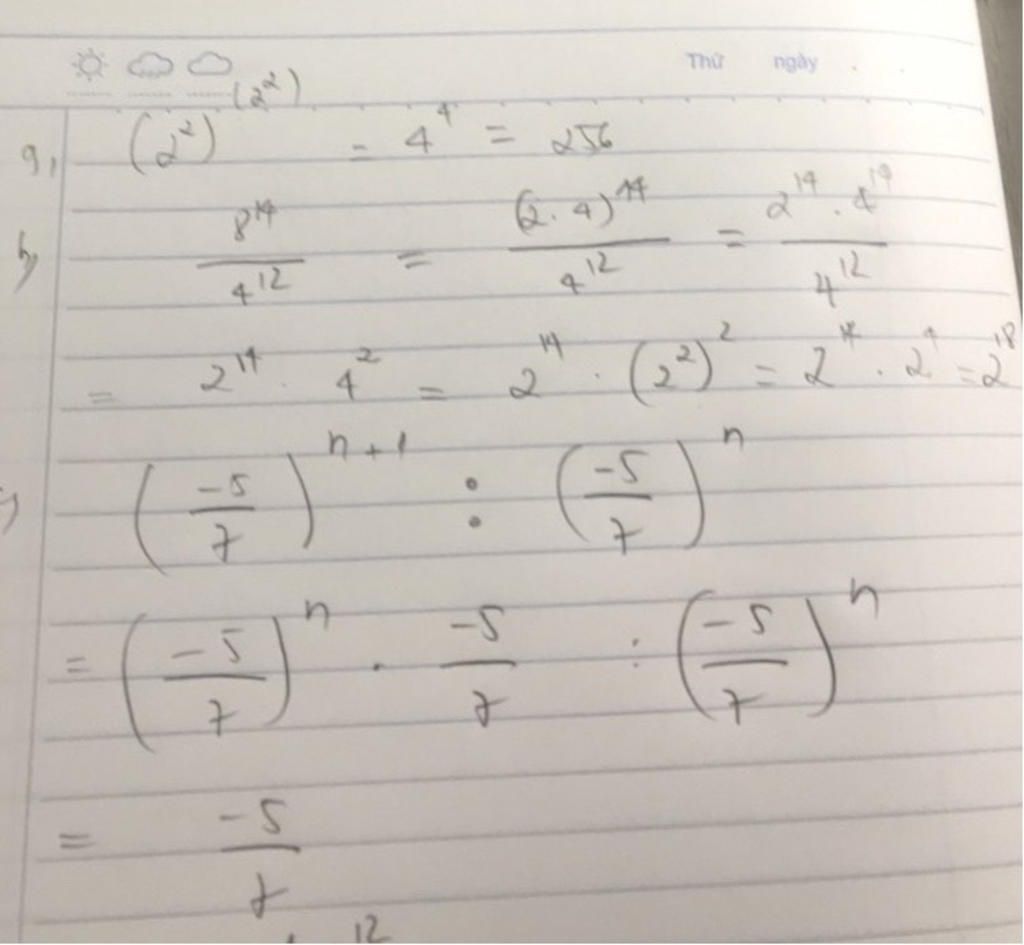 Thứ ngày
a, (2²)^(2²) = 4⁴ = 256
b, 8¹⁴/4¹² = (2·4)¹⁴/4¹² = 2¹⁴·4¹⁴/4¹²
= 2¹⁴·4² = 2¹⁴·(2²)² = 2¹⁴·2⁴ = 2¹⁸
(-5/7)^(n+1) : (-5/7)^n
= (-5/7)^n · -5/7 : (-5/7)^n
= -5/7
12